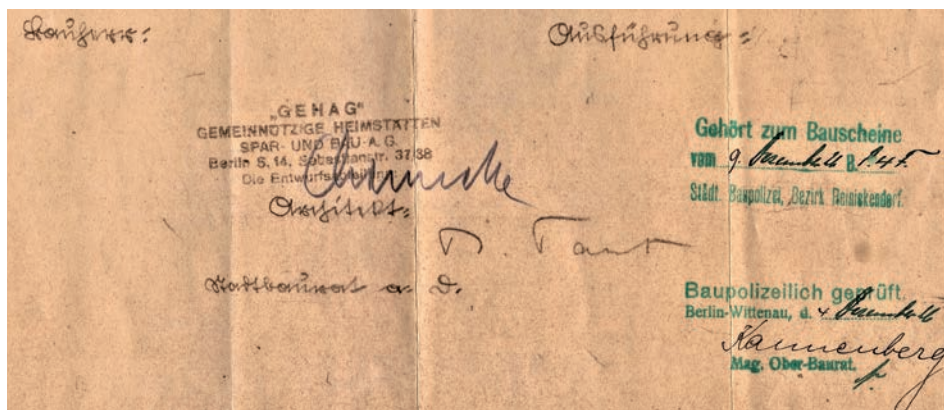 Bauherr:
Ausführung:
„GEHAG“
GEMEINNÜTZIGE HEIMSTÄTTEN
SPAR- UND BAU-A.G.
Berlin S. 14, Sebastianstr. 37/38
Die Entwurfsabteilung
Architekt:
B. Taut
Stadtbaurat a. D.
Gehört zum Bauscheine
vom 9. Dezember 26 B.
Städt. Baupolizei, Bezirk Reinickendorf.
Baupolizeilich geprüft.
Berlin-Wittenau, d. 4 Dezember 26
Kannenberg
Mag. Ober-Baurat.